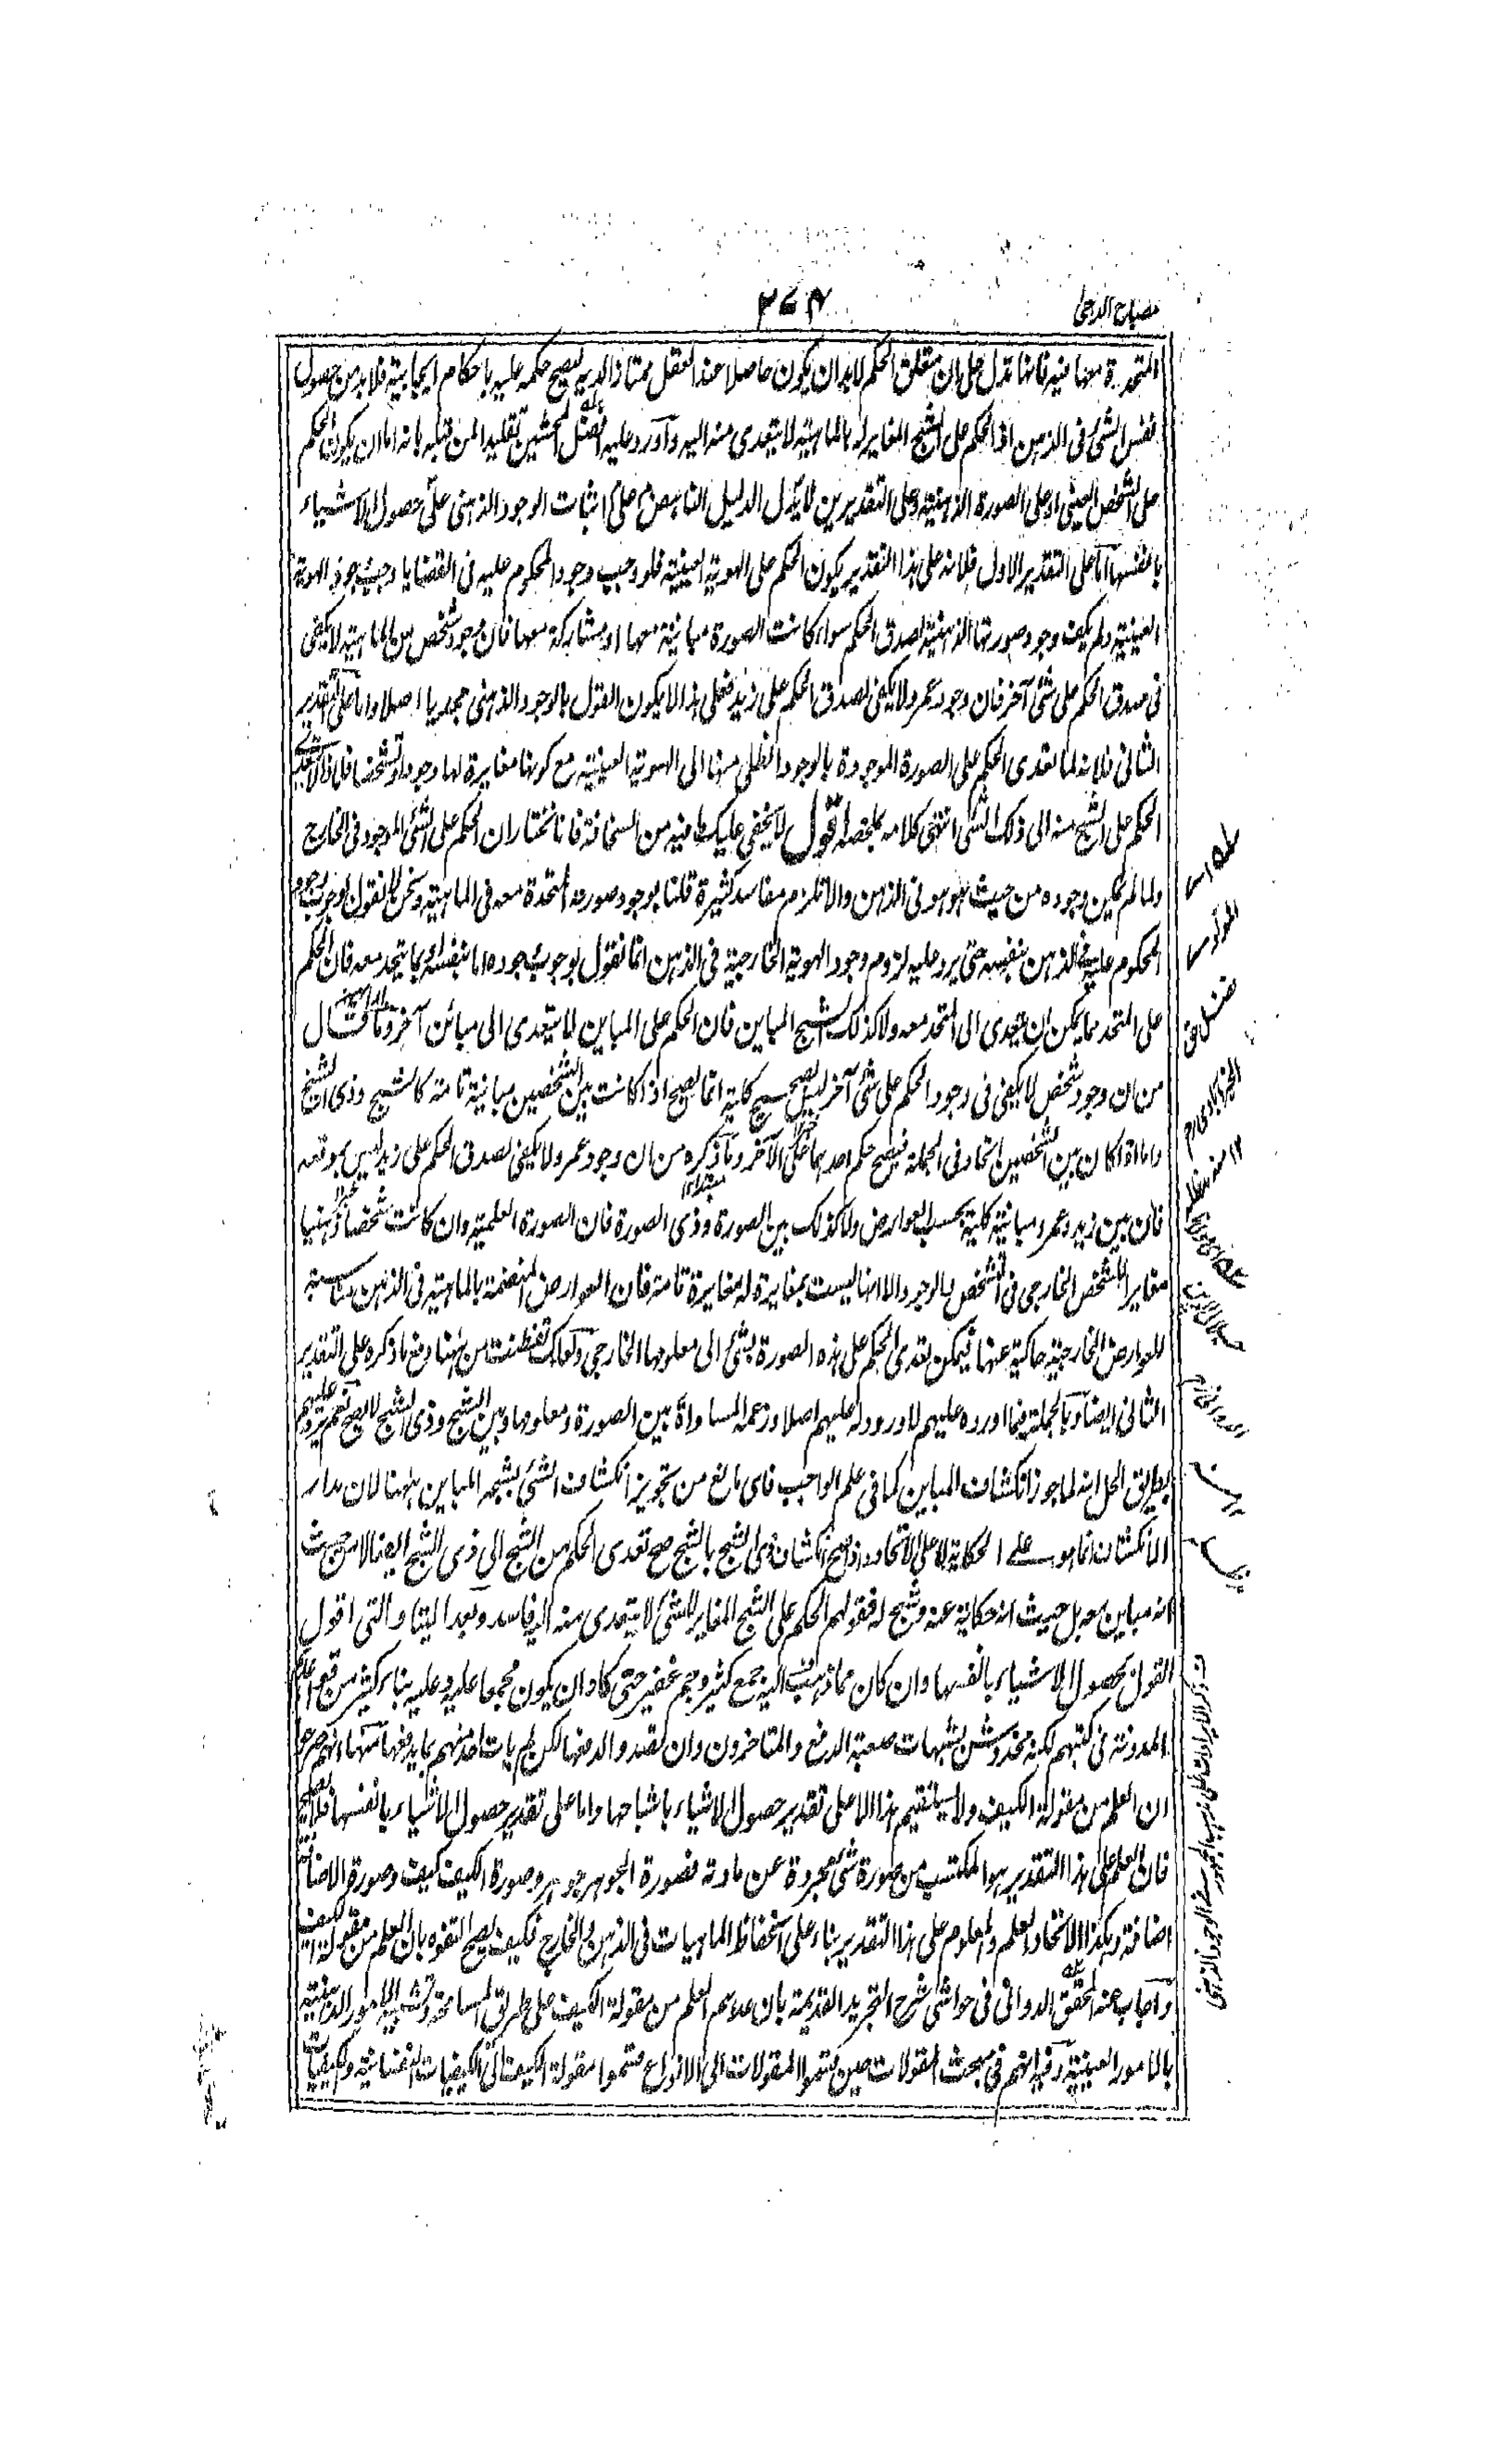 مصباح الدجى
٢٧٤
المتحدة معها فيه فانها تدل على ان متعلق الحكم لابد ان يكون حاصلا عند العقل ممتازا لديه ليصح حكمه عليه باحكام ايجابية فلابد من حصول
نفس الشئ فى الذهن اذ الحكم على الشبح المغاير له بالماهية لا يتعدى منه اليه وآورد عليه افضل المحشين تقليدا لمن قبله بانه اما ان يكون الحكم
على الشخص العينى او على الصورة الذهنية وعلى التقديرين لا يدل الدليل الناهض على اثبات الوجود الذهنى على حصول الاشياء
بانفسها آما على التقدير الاول فلانه على هذا التقدير يكون الحكم على الهوية العينية فلو وجب وجود المحكوم عليه فى القضايا وجب وجود الهوية
العينية ولم يكف وجود صورتها الذهنية لصدق الحكم سواء كانت الصورة مباينة معها او مشاركة معها فان وجود شخص من الماهية لا يكفى
فى صدق الحكم على شئ آخر فان وجود عمرو لا يكفى لصدق الحكم على زيد فعلى هذا لا يكون القول بالوجود الذهنى مجديا اصلا واما على التقدير
الثانى فلانه لما تعدى الحكم على الصورة الموجودة بالوجود الظلى منها الى الهوية العينية مع كونها مغايرة لها وجودا وتشخصا
الحكم على الشبح منه الى ذلك الشئ انتهى كلامه بملخصه اقول لا يخفى عليك ما فيه من السخافة فانا نختار ان الحكم على الشئ الموجود فى الخارج
ولما لم يكن وجوده من حيث هو هو فى الذهن والا تلزم مفاسد كثيرة قلنا بوجود صورته المتحدة معه فى الماهية ونحن لا نقول بوجوب وجود
المحكوم عليه فى الذهن بنفسه حتى يرد عليه لزوم وجود الهوية الخارجية فى الذهن انما نقول بوجوب وجوده اما بنفسه او بما يتحد معه فان الحكم
على المتحد مما يمكن ان يتعدى الى المتحد معه ولا كذلك الشبح المباين فان الحكم على المباين لا يتعدى الى مبائن آخر وما قال
من ان وجود شخص لا يكفى فى وجود الحكم على شئ آخر ليس بصحيح كلية انما يصح اذا كانت بين الشخصين مباينة تامة كالشبح وذى الشبح
واما اذا كان بين الشخصين اتحاد فى الجملة فيصح حكم احدهما على الآخر وما ذكره من ان وجود عمرو لا يكفى لصدق الحكم على زيد ليس بموقعه
فان بين زيد وعمرو مباينة كلية بحسب العوارض ولا كذلك بين الصورة وذى الصورة فان الصورة العلمية وان كانت شخصا ذهنيا
مغايرا للشخص الخارجى فى التشخص والوجود الا انها ليست بمغايرة له مغايرة تامة فان العوارض المنضمة بالماهية فى الذهن مناسبة
للعوارض الخارجية حاكية عنها فيمكن تعدى الحكم على هذه الصورة بشئ الى معلومها الخارجى ولعلك تفطنت من ههنا دفع ما ذكره على التقدير
الثانى ايضا وبالجملة فما اورده عليهم لا ورود له عليهم اصلا وزعمه المساواة بين الصورة ومعلومها وبين الشبح وذى الشبح لا يصح نعم يرد عليهم
بطريق الحل انه لما جوز انكشاف المباين كما فى علم الواجب فاى مانع من تجويز انكشاف الشئ بشبحه المباين ههنا لان مدار
الانكشاف انما هو على الحكاية لا على الاتحاد واذا صح انكشاف ذى الشبح بالشبح صح تعدى الحكم من الشبح الى ذى الشبح ايضا لا من حيث
انه مباين معه بل حيث انه حكاية عنه وشبح له فقولهم الحكم على الشبح المغاير للشئ لا يتعدى منه اليه فاسد وبعد اللتيا والتى اقول
القول بحصول الاشياء بانفسها وان كان مما ذهب اليه جمع كثير وجم غفير حتى كاد ان يكون مجمعا عليه وعليه بناء كثير من
المدونة فى كتبهم لكنه مخدوش بشبهات صعبة الدفع والمتاخرون وان تصدوا لدفعها لكن لم يات احد منهم بما يدفعها منها انهم صرحوا
ان العلم من مقولة الكيف ولا يستقيم هذا الا على تقدير حصول الاشياء باشباحها واما على تقدير حصول الاشياء بانفسها فلا
فان العلم على هذا التقدير هو المكتسب من صورة شئ مجردة عن مادته فصورة الجوهر جوهر وصورة الكيف كيف وصورة الاضافة
اضافة وهكذا لاتحاد العلم والمعلوم على هذا التقدير بناء على انحفاظ الماهيات فى الذهن والخارج فكيف يصح التفوه بان العلم من مقولة الكيف
وآجاب عنه المحقق الدوانى فى حواشى شرح التجريد القديمة بان عدهم العلم من مقولة الكيف على طريق المسامحة وتشبيه الامور الذهنية
بالامور العينية وفيه انهم فى مبحث المقولات حين قسموا المقولات الى الانواع قسموا مقولة الكيف الى الكيفيات النفسانية والكيفيات